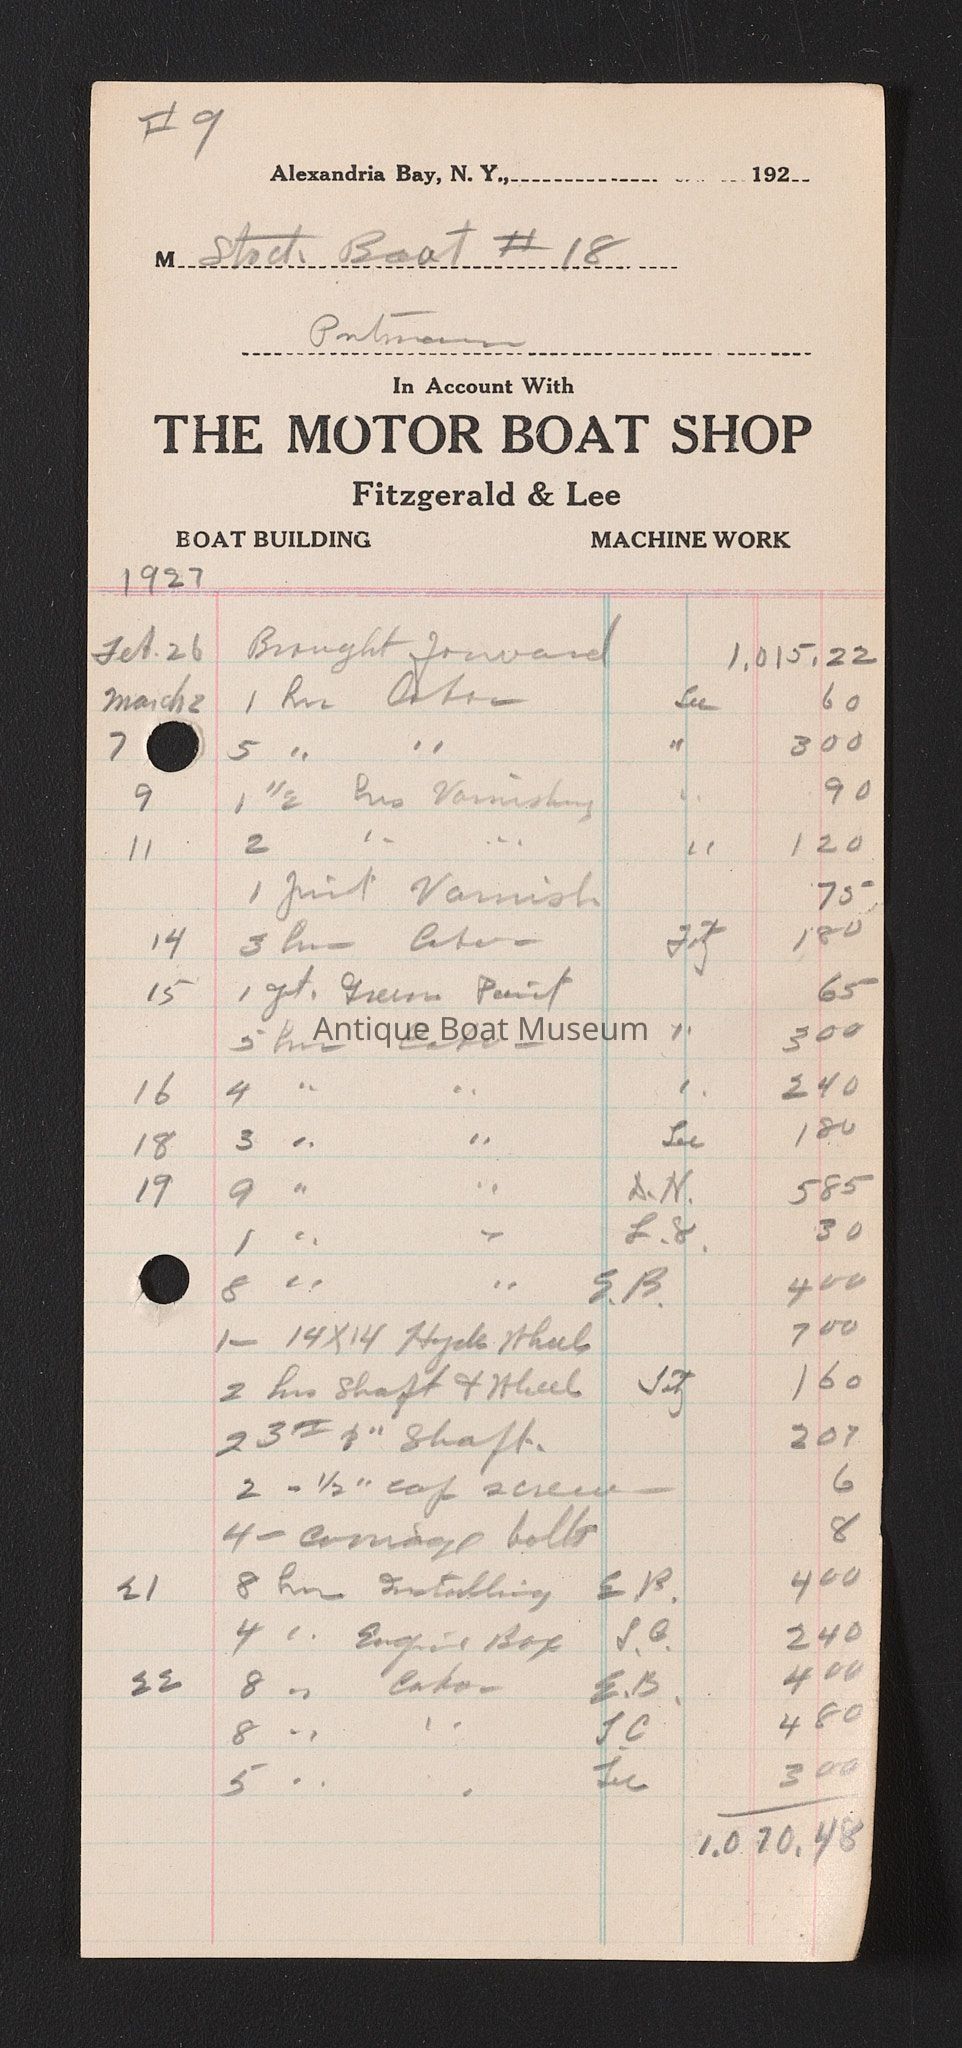 # 9
Alexandria Bay, N. Y., 192
M Stock Boat # 18
In Account With
THE MOTOR BOAT SHOP
Fitzgerald & Lee
BOAT BUILDING MACHINE WORK
1927
Feb. 26 Brought Forward 1,015.22
March 2 1 hr Labor Lee 60
7 5 " " " 3 00
9 1 1/2 hrs Varnishing " 90
11 2 " " " 1 20
1 pint Varnish 75
14 3 hrs Labor Fitz 1 80
15 1 qt. Green Paint 65
5 hrs Labor " 3 00
Antique Boat Museum
16 4 " " " 2 40
18 3 " " Lee 1 80
19 9 " " D.N. 5 85
1 " " 30
8 " " E.B. 4 00
1 - 14X14 Hyde Wheel 7 00
2 hrs Shaft & Wheel Fitz 1 60
Shaft. 2 07
2 - 1/2" cap screws 6
4 - carriage bolts 8
21 8 hrs Installing E.B. 4 00
4 " Engine Box 2 40
22 8 " Labor E.B. 4 00
8 " " 4 80
5 " " Lee 3 00
1,070.48